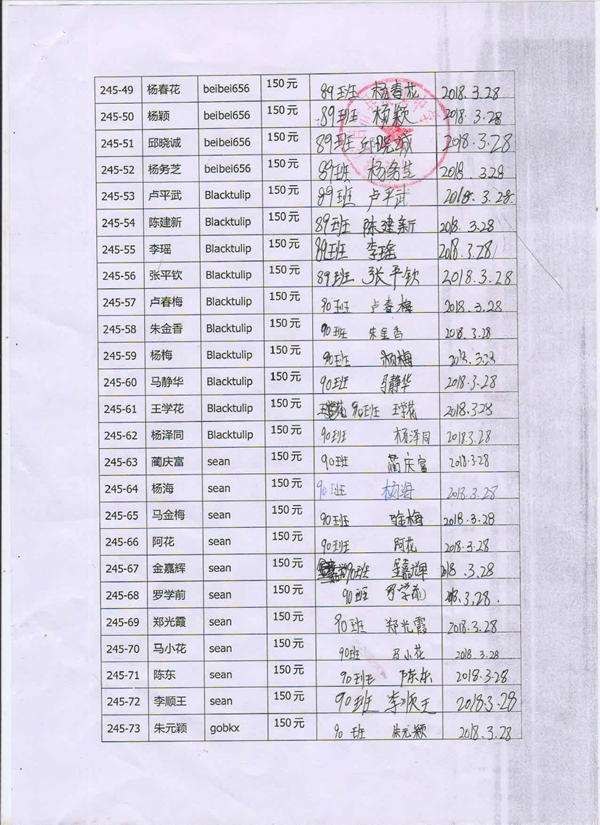 245-49 杨春花 beibei656 150元 89班 杨春花 2018.3.28
245-50 杨颖 beibei656 150元 89班 杨颖 2018.3.28
245-51 邱晓诚 beibei656 150元 89班 邱晓诚 2018.3.28
245-52 杨务芝 beibei656 150元 89班 杨务芝 2018.3.28
245-53 卢平武 Blacktulip 150元 89班 卢平武 2018.3.28
245-54 陈建新 Blacktulip 150元 89班 陈建新 2018.3.28
245-55 李瑶 Blacktulip 150元 89班 李瑶 2018.3.28
245-56 张平钦 Blacktulip 150元 89班 张平钦 2018.3.28
245-57 卢春梅 Blacktulip 150元 90班 卢春梅 2018.3.28
245-58 朱金香 Blacktulip 150元 90班 朱金香 2018.3.28
245-59 杨梅 Blacktulip 150元 90班 杨梅 2018.3.28
245-60 马静华 Blacktulip 150元 90班 马静华 2018.3.28
245-61 王学花 Blacktulip 150元 90班 王学花 2018.3.28
245-62 杨泽同 Blacktulip 150元 90班 杨泽同 2018.3.28
245-63 蔺庆富 sean 150元 90班 蔺庆富 2018.3.28
245-64 杨海 sean 150元 90班 杨海 2018.3.28
245-65 马金梅 sean 150元 90班 2018.3.28
245-66 阿花 sean 150元 90班 阿花 2018.3.28
245-67 金嘉辉 sean 150元 90班 2018.3.28
245-68 罗学前 sean 150元 90班 罗学前 2018.3.28.
245-69 郑光霞 sean 150元 90班 郑光霞 2018.3.28
245-70 马小花 sean 150元 90班 马小花 2018.3.28
245-71 陈东 sean 150元 90班 陈东 2018.3.28
245-72 李顺王 sean 150元 90班 李顺王 2018.3.28
245-73 朱元颖 gobkx 150元 90班 朱元颖 2018.3.28